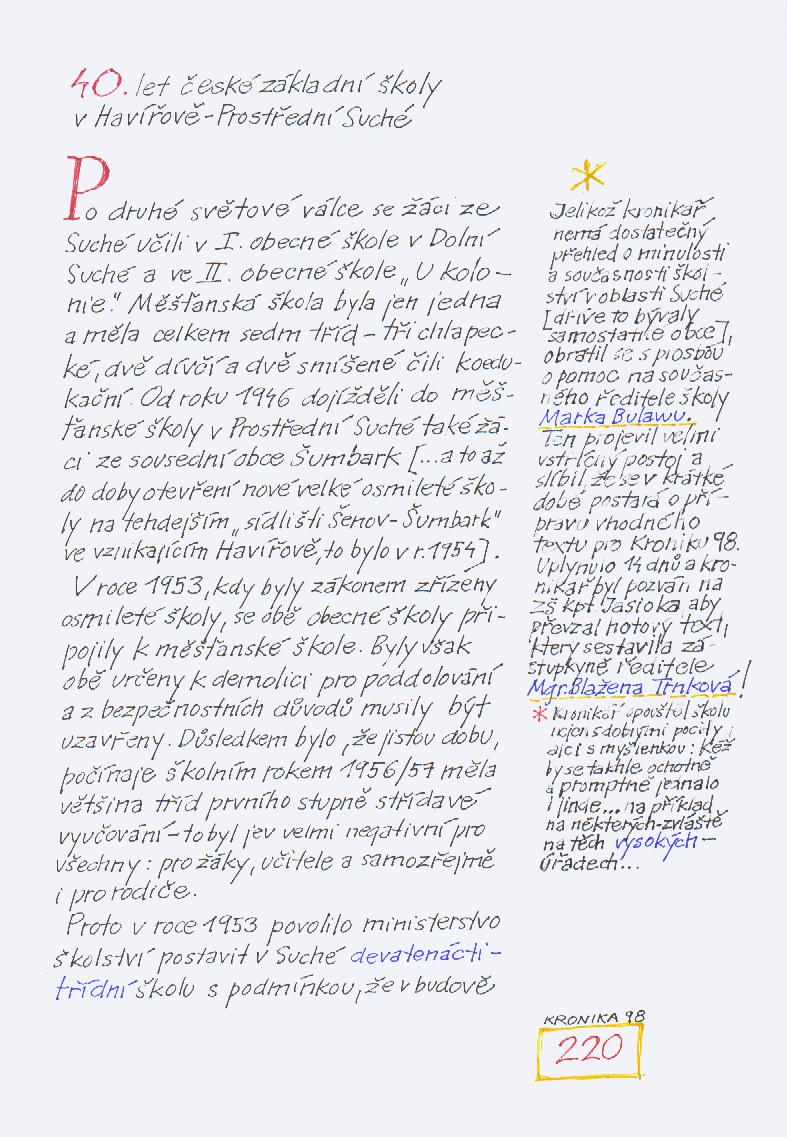 40. let české základní školy
v Havířově-Prostřední Suché
Po druhé světové válce se žáci ze
Suché učili v I. obecné škole v Dolní
Suché a ve II. obecné škole „U kolo-
nie." Měšťanská škola byla jen jedna
a měla celkem sedm tříd - tři chlapec-
ké, dvě dívčí a dvě smíšené čili koedu-
kační. Od roku 1946 dojížděli do měš-
ťanské školy v Prostřední Suché také žá-
ci ze sousední obce Šumbark [...a to až
do doby otevření nové velké osmileté ško-
ly na tehdejším „sídlišti Šenov-Šumbark"
ve vznikajícím Havířově, to bylo v r. 1954].
V roce 1953, kdy byly zákonem zřízeny
osmileté školy, se obě obecné školy při-
pojily k měšťanské škole. Byly však
obě určeny k demolici pro poddolování
a z bezpečnostních důvodů musily být
uzavřeny. Důsledkem bylo, že jistou dobu,
počínaje školním rokem 1956/57 měla
většina tříd prvního stupně střídavé
vyučování - to byl jev velmi negativní pro
všechny: pro žáky, učitele a samozřejmě
i pro rodiče.
Proto v roce 1953 povolilo ministerstvo
školství postavit v Suché devatenácti-
třídní školu s podmínkou, že v budově
*
Jelikož kronikář
nemá dostatečný
přehled o minulosti
a současnosti škol-
ství v oblasti Suché
[dříve to bývaly
samostatné obce],
obrátil se s prosbou
o pomoc na součas-
ného ředitele školy
Marka Bulawu.
Ten projevil velmi
vstřícný postoj a
slíbil, že se v krátké
době postará o pří-
pravu vhodného
textu pro Kroniku 98.
Uplynulo 14 dnů a kro-
nikář byl pozván na
ZŠ kpt. Jasioka aby
převzal hotový text,
který sestavila zá-
stupkyně ředitele
Mgr. Blažena Trnková!
* Kronikář opouštěl školu
nejen s dobrými pocity,
ale i s myšlenkou: Kéž
by se takhle ochotně
a promptně jednalo
i jinde... na příklad
na některých-zvláště
na těch vysokých-
úřadech...
KRONIKA 98
220